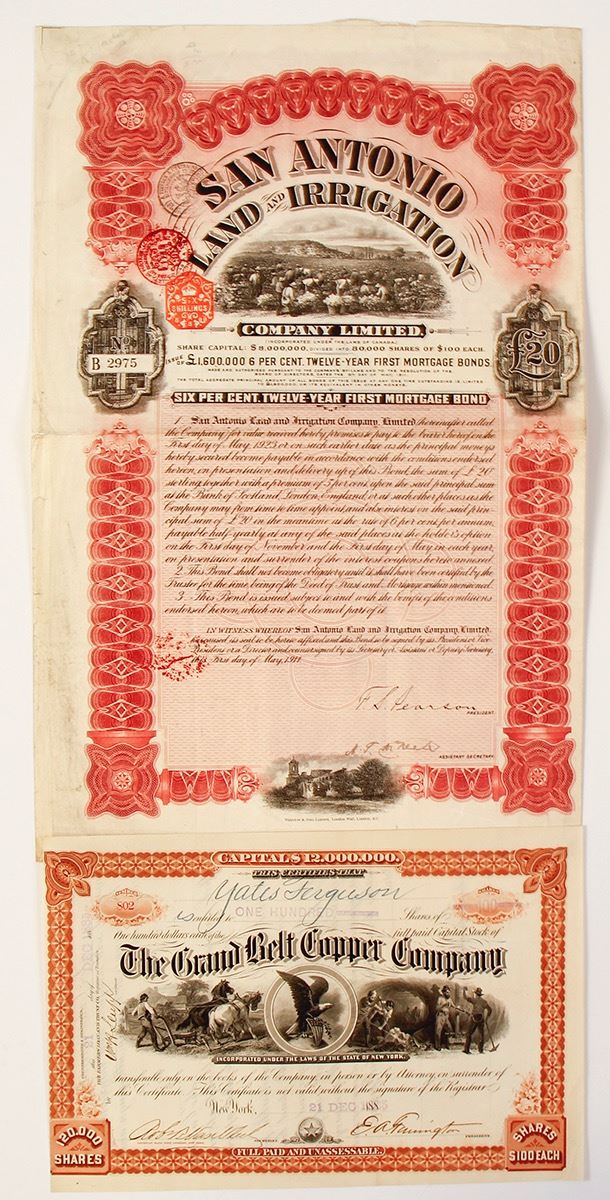 SAN ANTONIO
LAND AND IRRIGATION
COMPANY LIMITED
(INCORPORATED UNDER THE LAWS OF CANADA)
SHARE CAPITAL: $8,000,000, DIVIDED INTO 80,000 SHARES OF $100 EACH.
No
B 2975
£20
SIX
SHILLINGS
AND
ISSUE OF £1,600,000 6 PER CENT. TWELVE-YEAR FIRST MORTGAGE BONDS.
MADE AND AUTHORISED PURSUANT TO THE COMPANY'S BYLAWS AND TO THE RESOLUTION OF THE
BOARD OF DIRECTORS, DATED THE DAY OF MAY, 1911.
THE TOTAL AGGREGATE PRINCIPAL AMOUNT OF ALL BONDS OF THIS ISSUE AT ANY ONE TIME OUTSTANDING IS LIMITED
TO £1,600,000, OR ITS EQUIVALENT IN OTHER MONEYS.
SIX PER CENT. TWELVE-YEAR FIRST MORTGAGE BOND
1. San Antonio Land and Irrigation Company, Limited (hereinafter called
the Company) for value received hereby promises to pay to the bearer hereof on the
First day of May 1923 or on such earlier date as the principal moneys
hereby secured become payable in accordance with the conditions endorsed
hereon, on presentation and delivery up of this Bond, the sum of £20
sterling together with a premium of 5 per cent. upon the said principal sum
at the Bank of Scotland, London, England, or at such other places as the
Company may from time to time appoint, and also interest on the said prin-
cipal sum of £20 in the meantime at the rate of 6 per cent. per annum,
payable half-yearly at any of the said places at the holder's option
on the First day of November and the First day of May in each year,
on presentation and surrender of the interest coupons hereto annexed.
2. This Bond shall not become obligatory until it shall have been certified by the
Trustee for the time being of the Deed of Trust and Mortgage within mentioned.
3. This Bond is issued subject to and with the benefit of the conditions
endorsed hereon, which are to be deemed part of it.
IN WITNESS WHEREOF San Antonio Land and Irrigation Company, Limited,
has caused its seal to be hereto affixed and this Bond to be signed by its President or Vice-
President or a Director and countersigned by its Secretary or Assistant or Deputy-Secretary,
this First day of May, 1911.
F. S. Pearson
PRESIDENT.
ASSISTANT SECRETARY.
Waterlow & Sons Limited, London Wall, London, E.C.
CAPITAL $12,000,000.
THIS CERTIFIES THAT
802
SHARES
100
Yates Ferguson
is entitled to ONE HUNDRED Shares of
One hundred dollars each of the full paid Capital Stock of
The Grand Belt Copper Company
INCORPORATED UNDER THE LAWS OF THE STATE OF NEW YORK.
transferable only on the books of the Company, in person or by Attorney, on surrender of
this Certificate. This Certificate is not valid without the signature of the Registrar.
New York, 21 DEC 1885
SECRETARY
E. A. Pennington
PRESIDENT
120,000
SHARES
FULL PAID AND UNASSESSABLE.
SHARES
$100 EACH